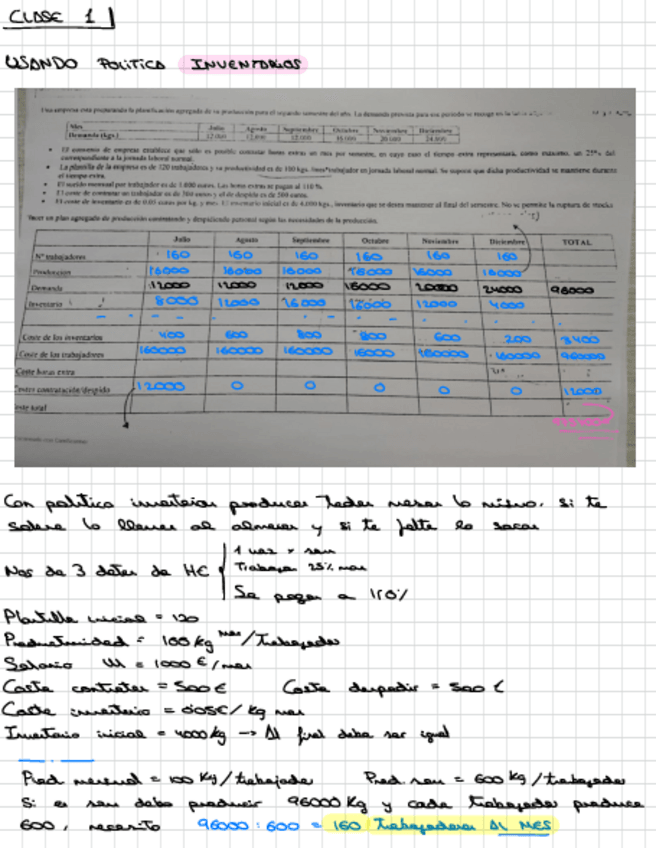 CLASE 1
USANDO POLITICA INVENTARIOS
Una empresa está preparando la planificación agregada de su producción para el segundo semestre del año. La demanda prevista para ese período se recoge en la
Mes Julio Agosto Septiembre Octubre Noviembre Diciembre
Demanda (Kgs.) 12.000 12.000 12.000 16.000 20.000 24.000
El convenio de empresa establece que sólo es posible contratar horas extras un mes por semestre, en cuyo caso el tiempo extra representará, como máximo, un 25% del
correspondiente a la jornada laboral normal.
La plantilla de la empresa es de 120 trabajadores y su productividad es de 100 kgs. /mes*trabajador en jornada laboral normal. Se supone que dicha productividad se mantiene durante
el tiempo extra.
El sueldo mensual por trabajador es de 1.000 euros. Las horas extras se pagan al 110 %.
El coste de contratar un trabajador es de 300 euros y el de despido es de 500 euros.
El coste de inventario es de 0.05 euros por kg. y mes. El inventario inicial es de 4.000 kgs., inventario que se desea mantener al final del semestre. No se permite la ruptura de stocks
Hacer un plan agregado de producción contratando y despidiendo personal según las necesidades de la producción.
Julio Agosto Septiembre Octubre Noviembre Diciembre TOTAL
Nº trabajadores 160 160 160 160 160 160
Producción 16000 16000 16000 16000 16000 16000
Demanda 12000 12000 12000 16000 20000 24000 96000
Inventario 8000 12000 16000 16000 12000 4000
Coste de los inventarios 400 600 800 800 600 200 3400
Coste de los trabajadores 160000 160000 160000 16000 160000 160000 960000
Coste horas extra
Costes contratación/despido 12000 0 0 0 0 0 12000
Coste total
Con politica inventarios produces todos meses lo mismo. Si te
sobra lo llevas al almacen y si te falta lo sacas
Nos da 3 datos de HE 1 vez x sem
Trabajan 25% mas
Se pagan a 110%
Plantilla inicial = 120
Productividad = 100 kg mes/trabajador
Salario = 1000 €/mes
Coste contratar = 500 € Coste despedir = 500 €
Coste inventario = 0'05€/kg mes
Inventario inicial = 4000 kg → Al final debe ser igual
Prod mensual = 100 Kg/trabajador Prod. sem = 600 kg/trabajador
Si es sem debo producir 96000 Kg y cada trabajador produce
600, necesito 96000 : 600 = 160 Trabajadores AL MES